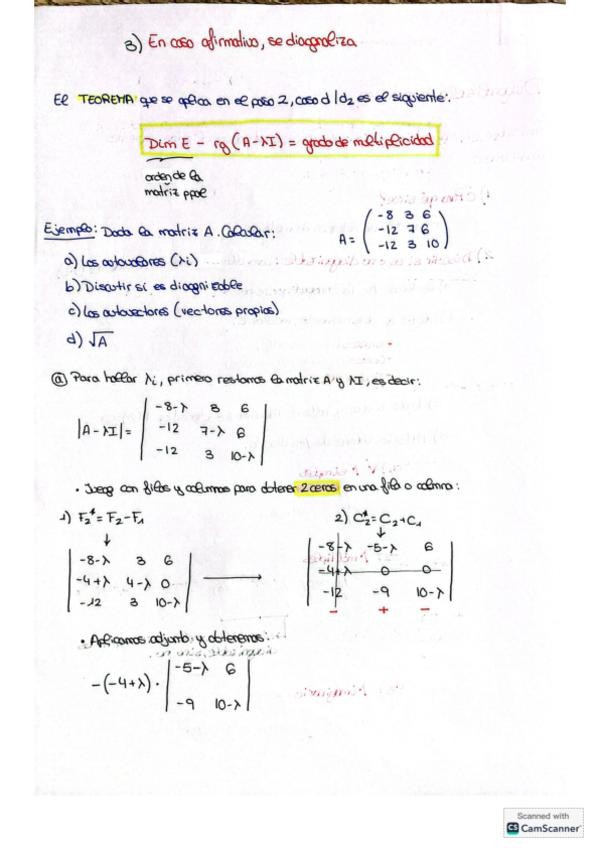 3) En caso afirmativo, se diagonaliza
El TEOREMA que se aplica en el paso 2, caso d1d2 es el siguiente:
Dim E - rg (A-λI) = grado de multiplicidad
orden de la
matriz ppal
Ejemplo: Dada la matriz A. Calcular:
A = ( -8 3 6
-12 7 6
-12 3 10 )
a) Los autovalores (λi)
b) Discutir si es diagnizable
c) Los autovectores (vectores propios)
d) √A
ⓐ Para hallar λi, primero restamos la matriz A y λI, es decir:
|A-λI| = | -8-λ 3 6 |
| -12 7-λ 6 |
| -12 3 10-λ |
• Juego con filas y columnas para obtener 2 ceros en una fila o columna:
1) F2* = F2 - F1
| -8-λ 3 6 |
| -4+λ 4-λ 0 |
| -12 3 10-λ |
2) C2* = C2 + C1
| -8-λ -5-λ 6 |
| -4+λ 0 0 |
| -12 -9 10-λ |
- + -
• Aplicamos adjunto y obtenemos:
-(-4+λ) · | -5-λ 6 |
| -9 10-λ |
Scanned with
CS CamScanner